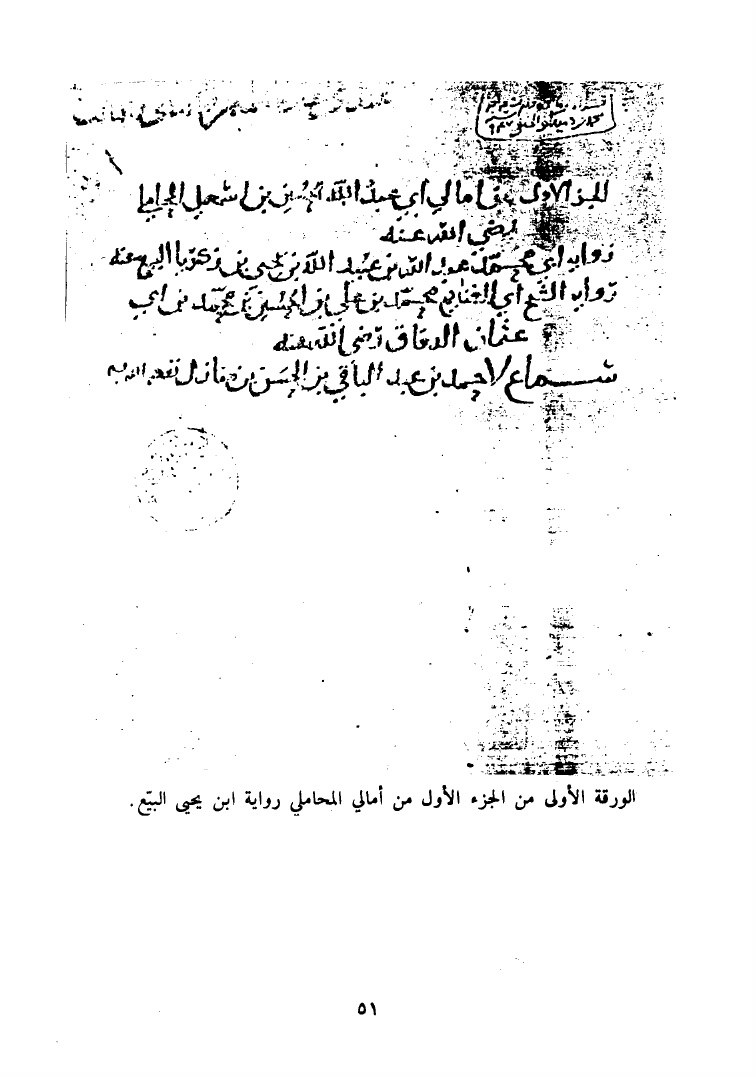 الجز الاول من امالي ابي عبد الله الحسين بن اسمعيل المحاملي
رضي الله عنه
روايه ابي محمد عبد الله بن عبيد الله بن يحيى بن زكريا البيع عنه
روايه الشيخ ابي الغنايم محمد بن علي بن الحسين بن محمد بن ابي
عثمان الدقاق رضي الله عنه
سماع لاحمد بن عبد الباقي بن الحسن بن منازل نفعه الله به
الورقة الأولى من الجزء الأول من أمالي المحاملي رواية ابن يحيى البيّع .
٥١